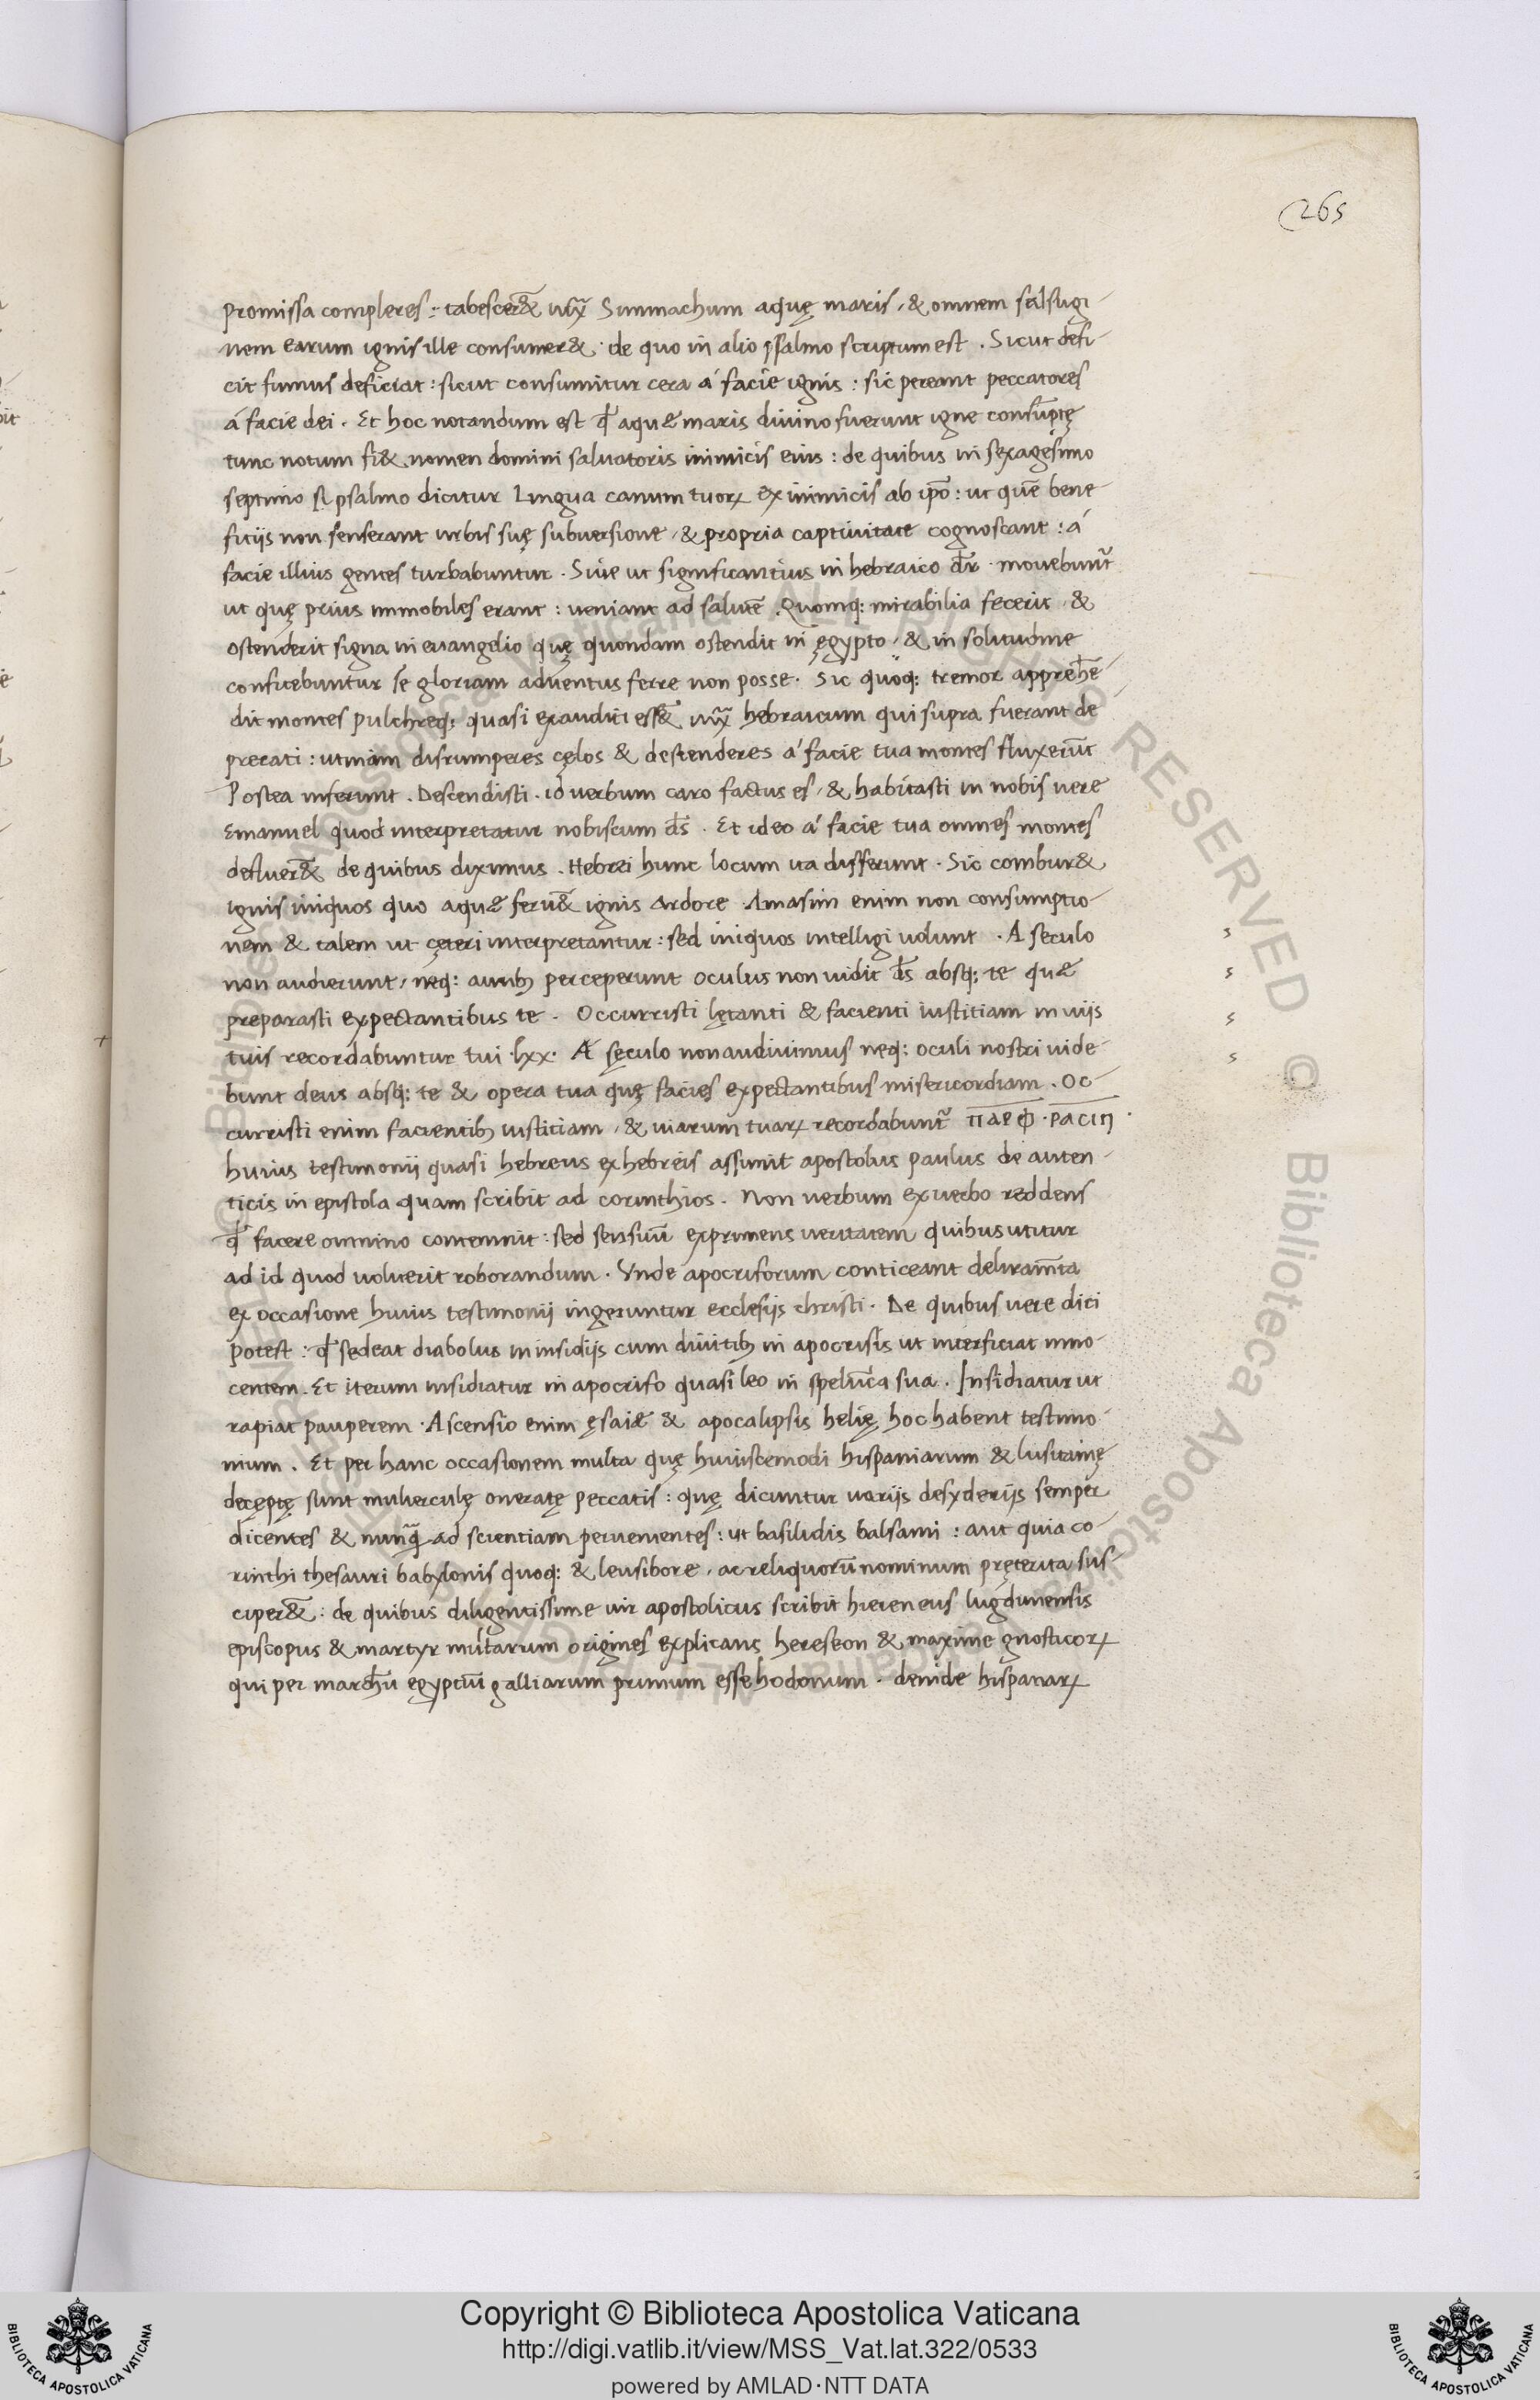 265
promissa compleres : tabescer&̄ iux̄ Simmachum aquę maris, & omnem salsugi-
nem earum ignis ille consumer& · de quo in alio psalmo scriptum est . Sicut defi-
cit fumus deficiat : sicut consumitur cera á facie ignis : sic pereant peccatores
á facie dei . Et hoc notandum est qđ aquæ maris divino fuerunt igne consūptę
tunc notum fi& nomen domini salvatoris inimicis eius : de quibus in sexagesimo
septimo psalmo dicitur Lingua canum tuoꝝ ex inimicis ab ipō : ut quē bene-
ficijs non senserant urbis suę subversione, & propria captivitate cognoscant : á
facie illius gentes turbabuntur . Sive ut significantius in hebraico dr̄ · movebunt̃
ut quę prius immobiles erant : veniant ad salutē . Quomq: mirabilia fecerit, &
ostenderit signa in evangelio quę quondam ostendit in ęgypto, & in solitudine
confitebuntur se gloriam adventus ferre non posse . Sic quoq: tremor apprehē-
dit montes pulchreq: quasi exauditi ess&̄ iux̄ hebraicum qui supra fuerant de
precati : utinam disrumperes cęlos & descenderes á facie tua montes fluxerūt
Postea inferunt . Descendisti . id verbum caro factus es, & habitasti in nobis vere
Emanuel quod interpretatur nobiscum ds̄ . Et ideo á facie tua omnes montes
defluer&̄ de quibus diximus . Hebrei hunc locum ita disserunt . Sic combur&
ignis iniquos quo aquæ ferū& ignis ardore Amasim enim non consumptio-
nem & talem ut cęteri interpretantur : sed iniquos intelligi volunt . A seculo
non audierunt, neq: aurib; perceperunt oculus non vidit ds̄ absq: te quæ
preparasti expectantibus te . Occurristi lętanti & facienti iustitiam in viis
tuis recordabuntur tui . lxx . A sęculo non audivimus neq: oculi nostri vide-
bunt deus absq: te & opera tua quę facies expectantibus misericordiam . Oc-
curristi enim facientib; iustitiam, & viarum tuaꝝ recordabunt̃ παρφ · ρασιη ·
huius testimonij quasi hebreus ex hebreis assumit apostolus paulus de auten-
ticis in epistola quam scribit ad corinthios . Non verbum ex verbo reddens
qđ facere omnino contemnit : sed sensuū exprimens veritatem quibus utitur
ad id quod voluerit roborandum . Unde apocriforum conticeant deliram̄ta
ex occasione huius testimonij ingeruntur ecclesijs christi . De quibus vere dici
potest : qđ sedeat diabolus in insidijs cum divitib; in apocrifis ut interficiat inno-
centem . Et iterum insidiatur in apocrifo quasi leo in spelūca sua . Insidiatur ut
rapiat pauperem . Ascensio enim ęsaiæ & apocalipsis helię hoc habent testimo-
nium . Et per hanc occasionem multa quę huiuscemodi hispaniarum & lusitanię
deceptę sunt mulierculę oneratę peccatis : quę dicuntur varijs desyderijs semper
dicentes & nunq̄ ad scientiam pervenientes : ut basilidis balsami : aut quia co-
rinthi thesauri babylonis quoq: & leusibore, ac reliquorū nominum pręterita sus-
ciper&̄ : de quibus diligentissime vir apostolicus scribit hiereneus lugdunensis
episcopus & martyr multarum origines explicans hereseon & maxime gnosticoꝝ
qui per marchū egyptiū galliarum primum esse hodonum . deinde hispaniaꝝ
Copyright © Biblioteca Apostolica Vaticana
http://digi.vatlib.it/view/MSS_Vat.lat.322/0533
powered by AMLAD·NTT DATA